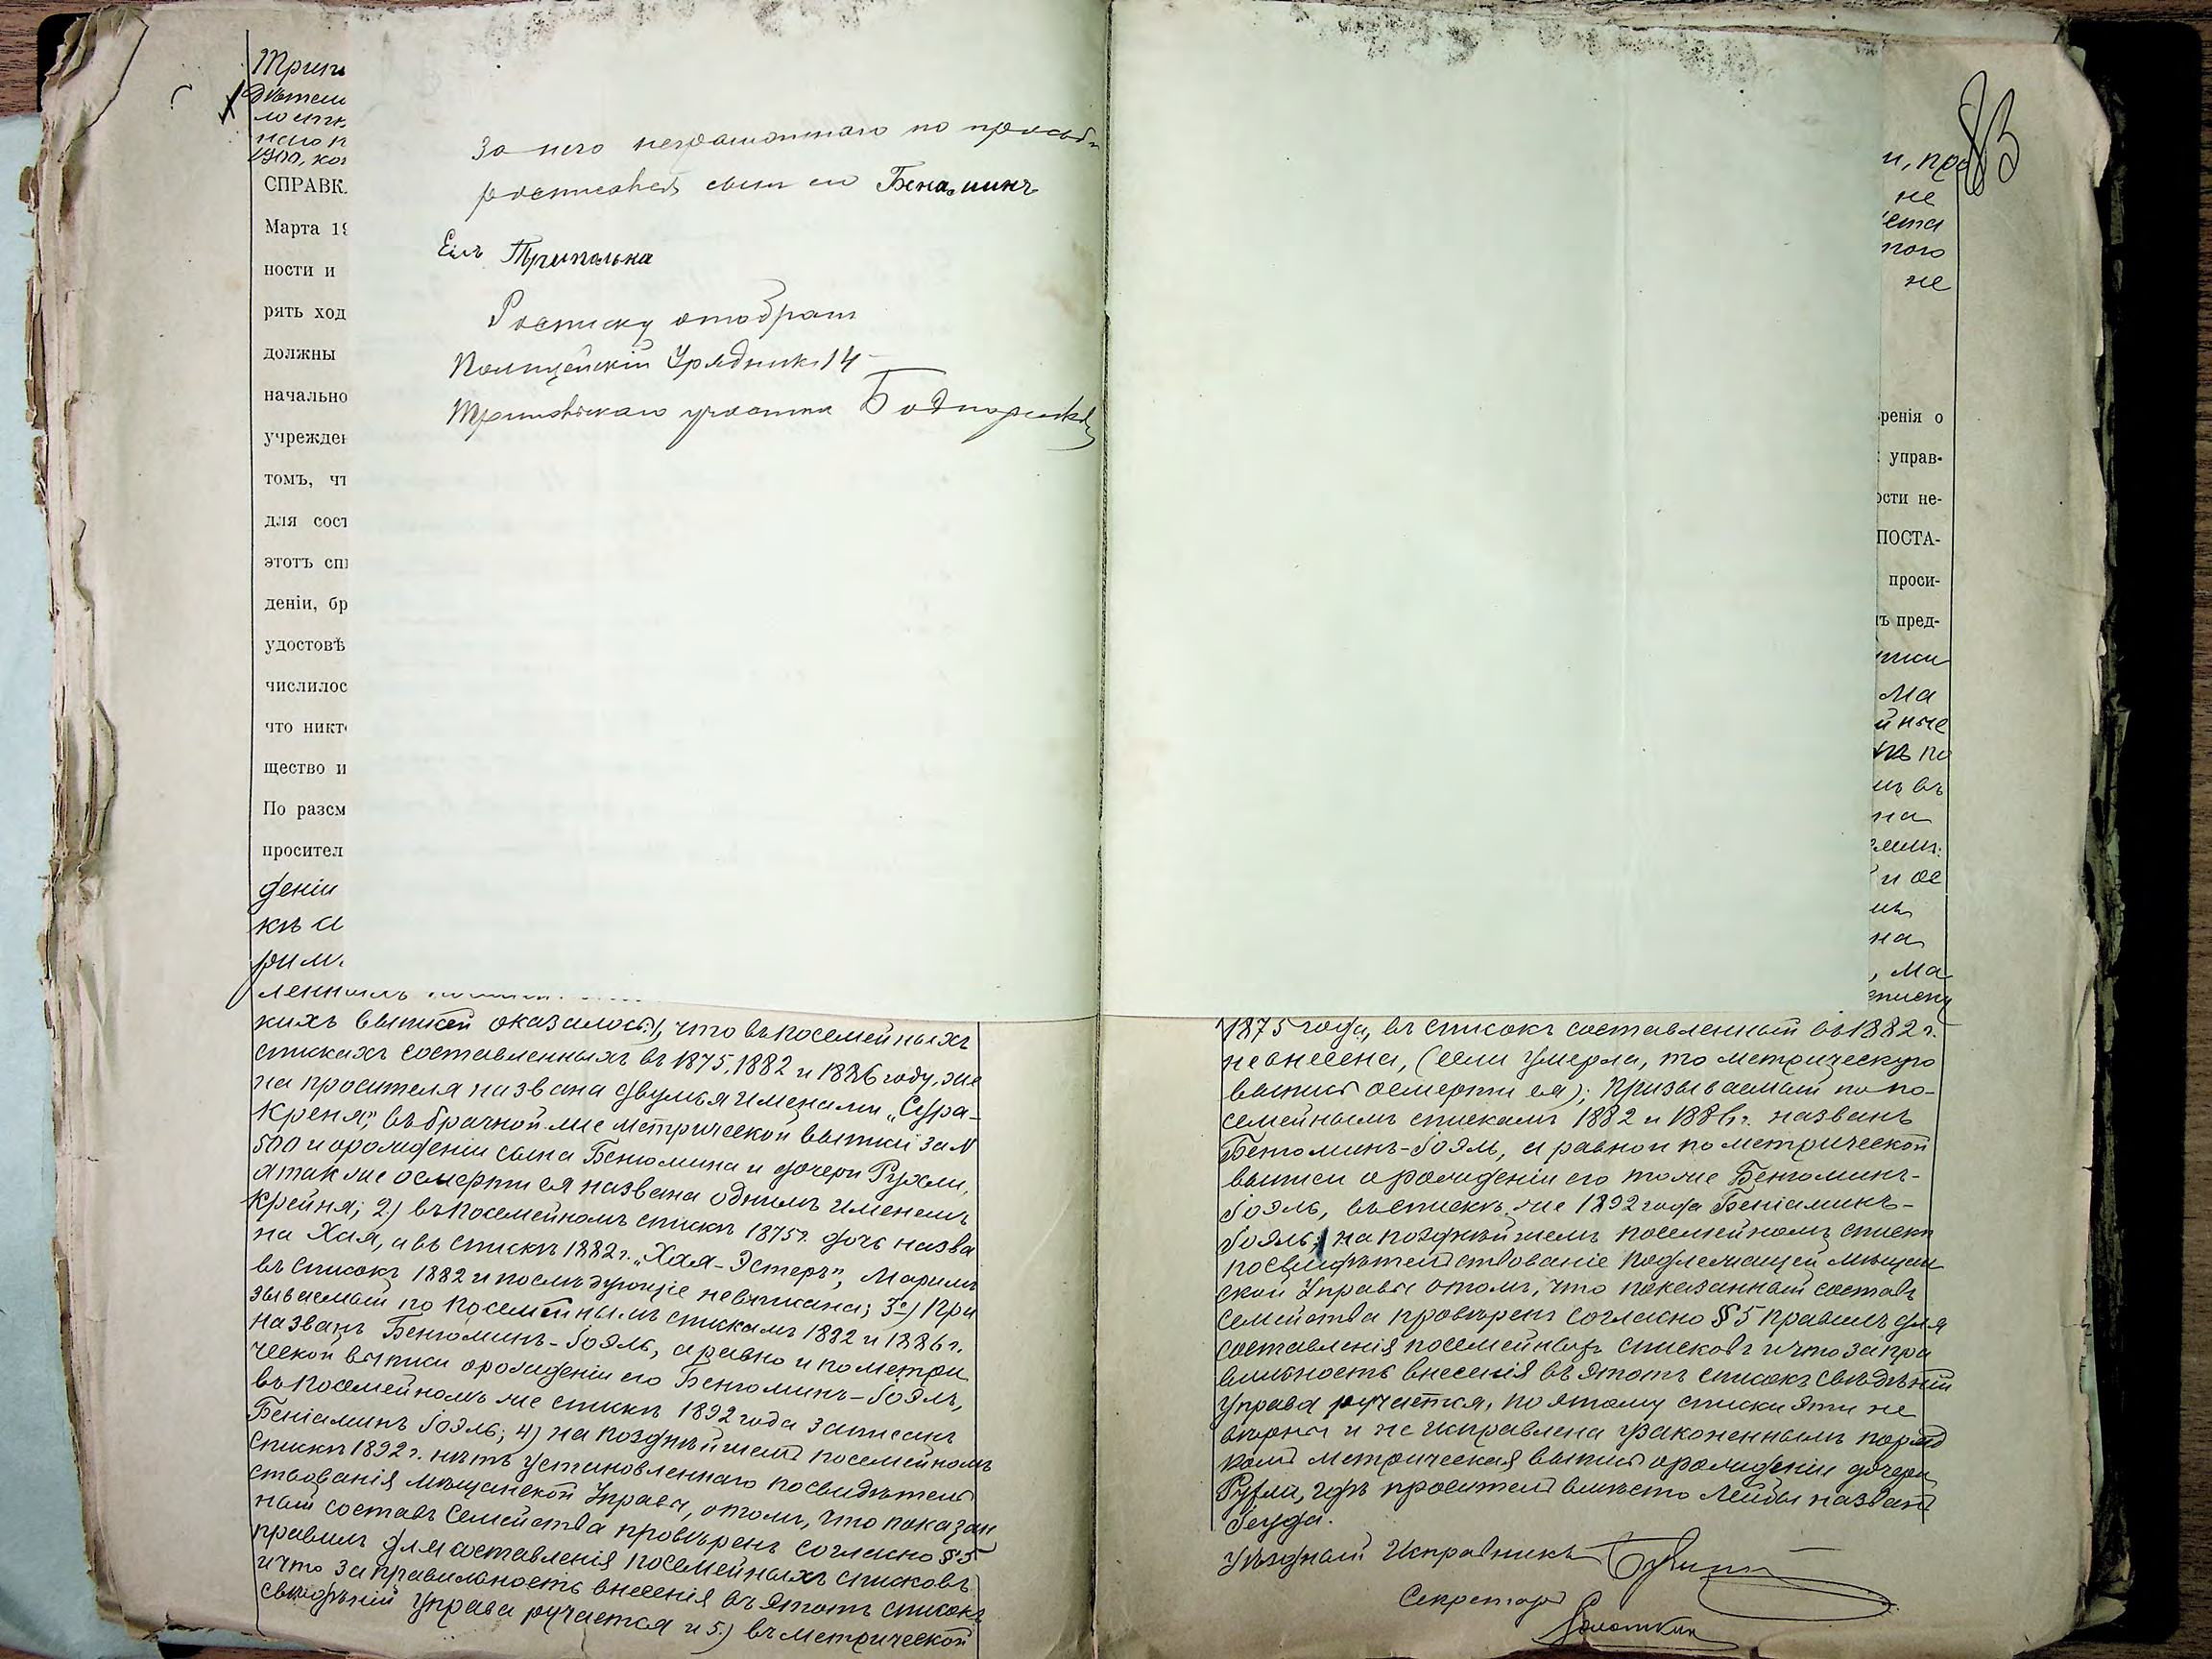 Трип
Дѣтей
1900, ко
СПРАВК
Марта 19
ности и
рять ход
должны
начально
учрежден
томъ, чт
для сост
этотъ спи
деніи, бр
удостовѣ
числилос
что никто
щество и
По разсм
просител
деніи
къ
рим
ленными
За него неграмотнаго по просьбѣ
росписался сынъ его Бенаминъ
Еіль Триполька
Росписку отобралъ
Полицейскій Урядникъ 14
участка
кихъ выписей оказалось: 1, что въ посемейныхъ
спискахъ составленныхъ въ 1875, 1882 и 1886 году, же
на просителя названа двумя именами „Сура-
Креня", въ брачной же метрической выписи за №
500 и о рожденіи сына Бенюмина и дочери Рухли,
а также о смерти ея названа однимъ именемъ
Крейня; 2) въ посемейномъ спискѣ 1875 г. дочь назва
на Хая, а въ спискѣ 1882 г. „Хая-Эстеръ", Маримъ
въ списокъ 1882 и послѣдующіе не вписана; 3) При
зываемый по посемейнымъ спискамъ 1882 и 1886 г.
названъ Бенюминъ-Іоэль, а равно и по метри
ческой выписи о рожденіи его Бенюминъ-Іоэль,
въ посемейномъ же спискѣ 1892 года записанъ
Беніаминъ Іоэль; 4) на позднѣйшемъ посемейномъ
спискѣ 1892 г. нѣтъ установленнаго посвидѣтель
ствованія мѣщанской Управы, о томъ, что показан
ный составъ семейства провѣренъ согласно § 5
правилъ для составленія посемейныхъ списковъ
и что за правильность внесенія въ этотъ списокъ
свѣдѣній Управа ручается и 5.) въ метрической
83
и, про
не
ета
того
не
ренія о
управ-
ости не-
ПОСТА-
проси-
ъ пред-
писи
Ма
йные
по
въ
на
и ос
на
, Ма
1875 года, въ списокъ составленный въ 1882 г.
не внесена, (если умерла, то метрическую
выпись о смерти ея); призываемый по по-
семейнымъ спискамъ 1882 и 1886 г. названъ
Бенюминъ-Іоэль, а равно и по метрической
выписи о рожденіи его тоже Бенюминъ-
Іоэль, въ спискѣ же 1892 года Беніаминъ-
Іоэль; на позднѣйшемъ посемейномъ спискѣ
посвидѣтельствованіе подлежащей мѣщан
ской Управы о томъ, что показанный составъ
семейства провѣренъ согласно § 5 правилъ для
составленія посемейныхъ списковъ и что за пра
вильность внесенія въ этотъ списокъ свѣдѣній
Управа ручается, поэтому списки эти не
вѣрны и не исправлена узаконеннымъ поряд
комъ метрическая выпись о рожденіи дочери
Рухли, гдѣ проситель вмѣсто Лейбы названъ
Іегуда.
Уѣздный Исправникъ
Секретарь